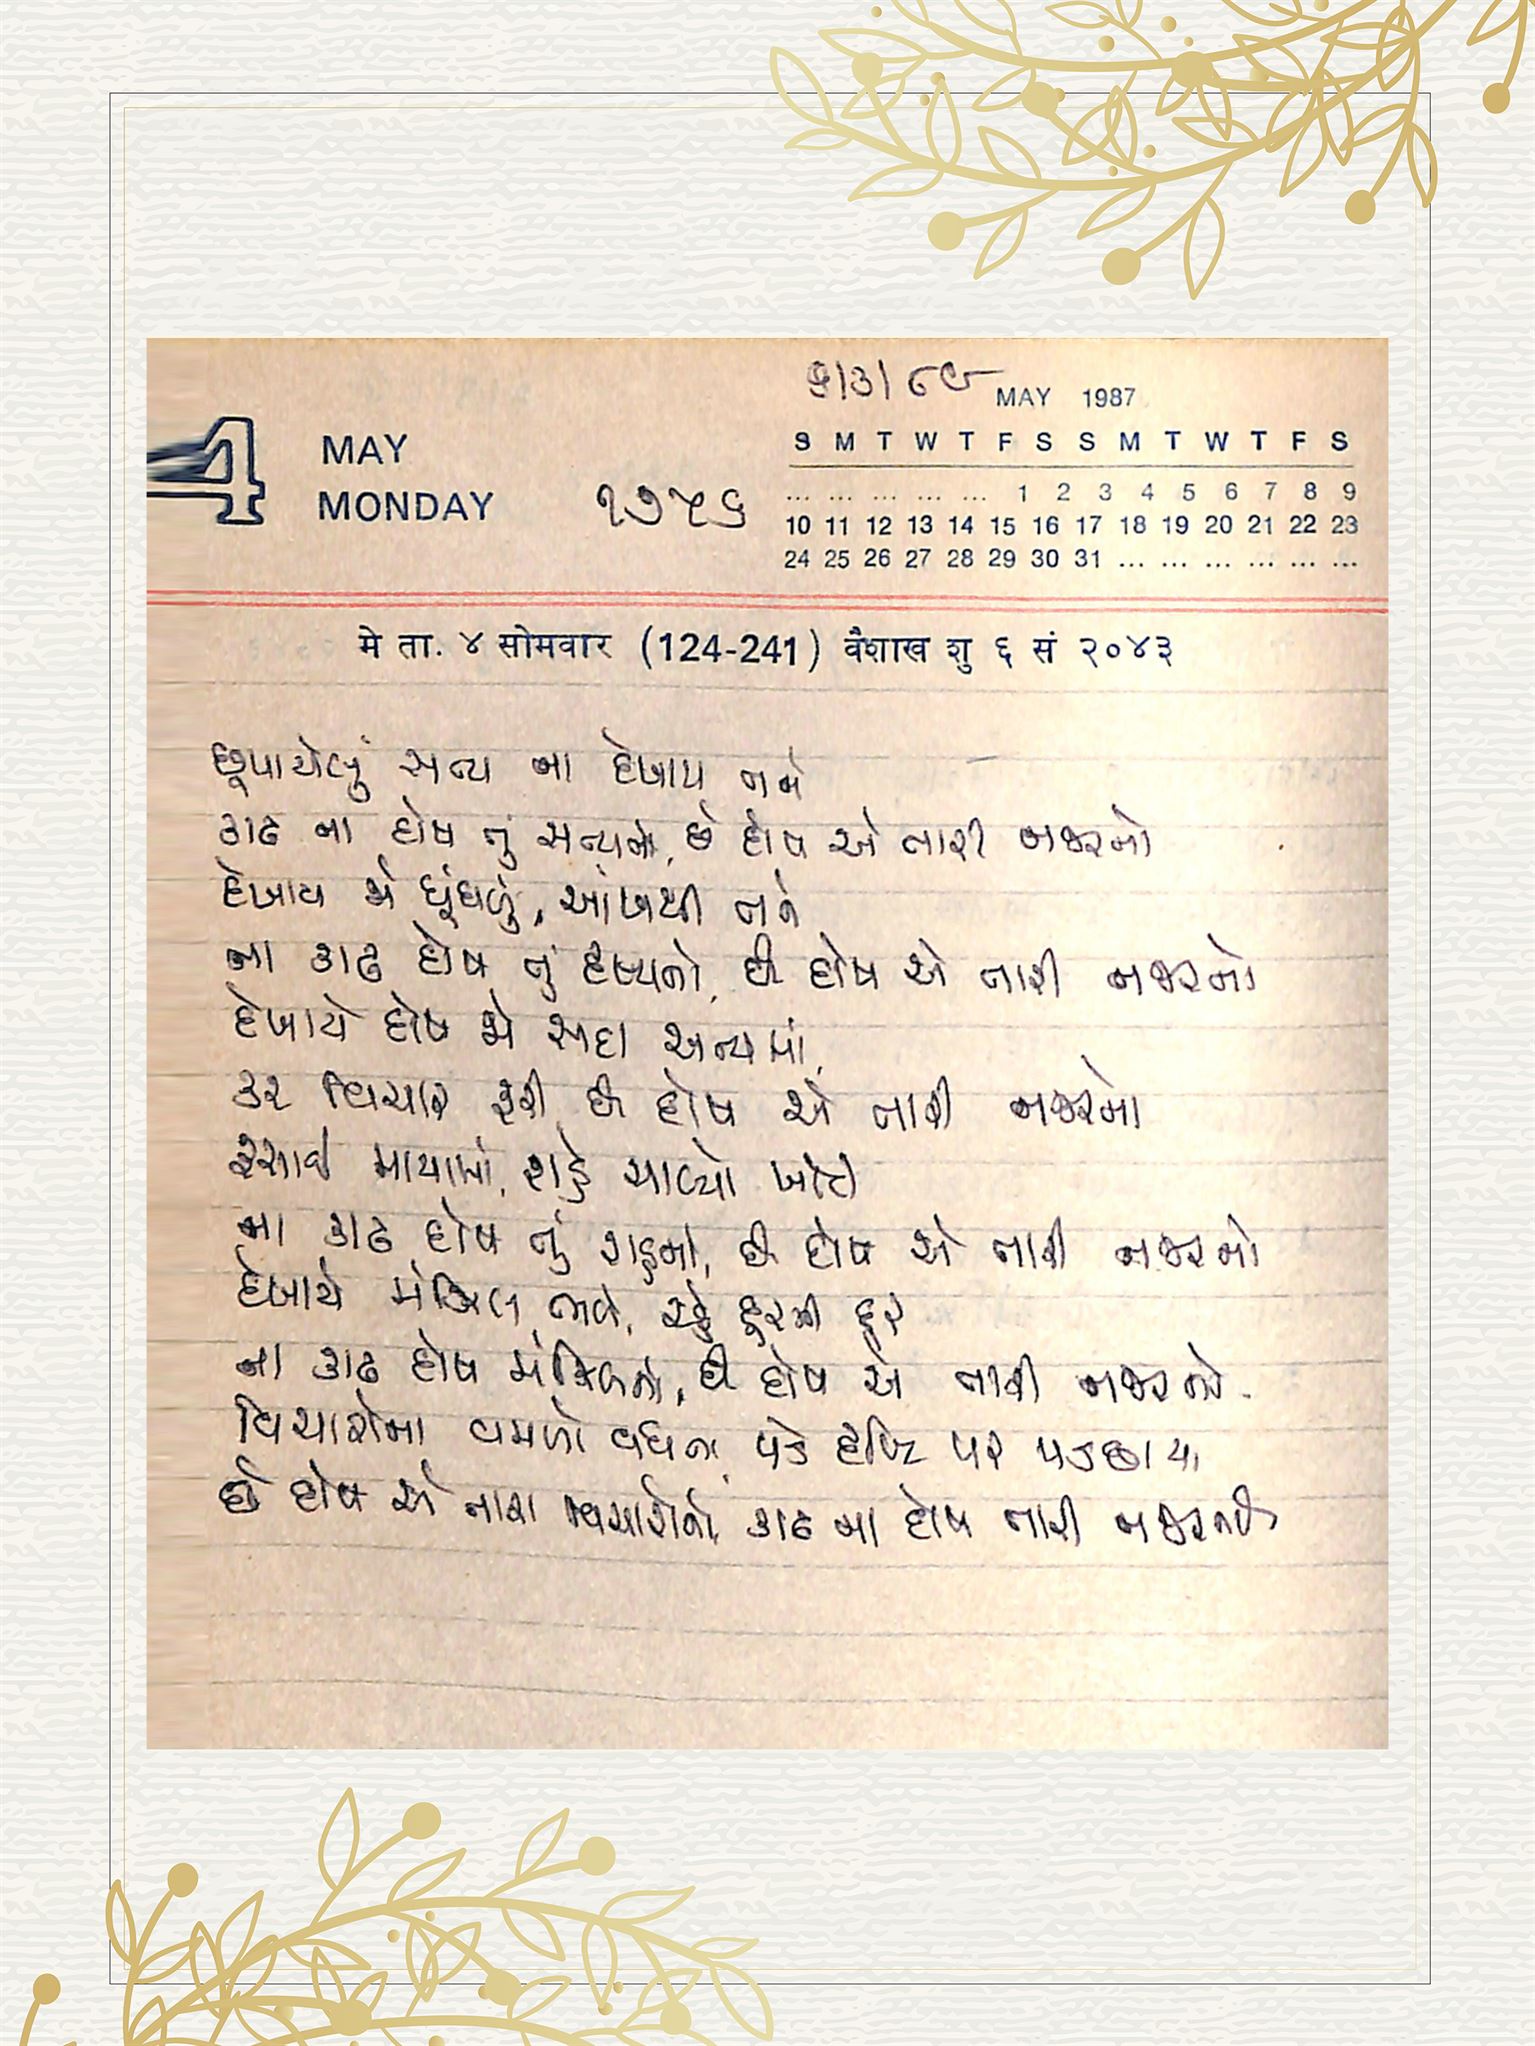 ૬/૩/૮૯
MAY 1987
4 MAY
MONDAY
૧૭૫૬
S M T W T F S S M T W T F S
... ... ... ... ... 1 2 3 4 5 6 7 8 9
10 11 12 13 14 15 16 17 18 19 20 21 22 23
24 25 26 27 28 29 30 31 ... ... ... ... ... ...
मे ता. ४ सोमवार (124-241) वैशाख शु ६ सं २०४३
છૂપાયેલું સત્ય ના દેખાય તને
કાઢ ના દોષ તું સત્યનો, છે દોષ એ તારી નજરનો
દેખાય જે ધૂંધળું, આંખથી તને
ના કાઢ દોષ તું દૃશ્યનો, છે દોષ એ તારી નજરનો
દેખાયે દોષ જે સદા અન્યમાં,
કર વિચાર ફરી છે દોષ એ તારી નજરનો
ફસાઈ માયામાં, રાહે ચાલ્યો ખોટી
ના કાઢ દોષ તું રાહનો, છે દોષ એ તારી નજરનો
દેખાયે મંઝિલ ભલે, રહે દૂરની દૂર
ના કાઢ દોષ મંઝિલનો, છે દોષ એ તારી નજરનો
વિચારોના વમળો વધતા, પડે દૃષ્ટિ પર પડછાયા
છે દોષ એ તારા વિચારોનો, કાઢ ના દોષ તારી નજરનો